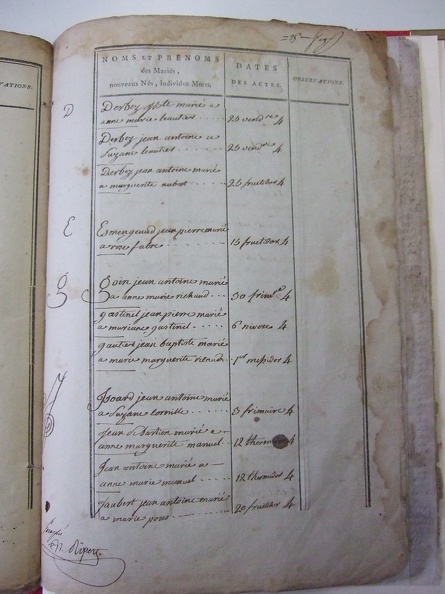 NOMS ET PRÉNOMS
des Mariés,
nouveaux Nés, Individus Morts,
DATES
DES ACTES.
OBSERVATIONS.
D
Derbez marié a
anne marie leautier 20 vendre 4
Derbez jean antoine a
Suzane leautier 20 vendre 4
Derbez jean antoine marié
a marguerite aubert 25 fructidor 4
E
Esmengeaud jean pierre marié
a rose fabre 15 fructidor 4
g
goin jean antoine marié
a anne marie richaud 30 frimre 4
gastinel jean pierre marié
a mariane gastinel 6 nivose 4
gautier jean baptiste marié
a marie marguerite 1er messidor 4
J
Isoard jean antoine marié
a Suzane 3 frimaire 4
Jean Sebastien marié a
anne marguerite manuel 12 thermidor 4
Jean antoine marié a
anne marie manuel 12 thermidor 4
Jaubert jean antoine marié
a marie pons 20 fructidor 4